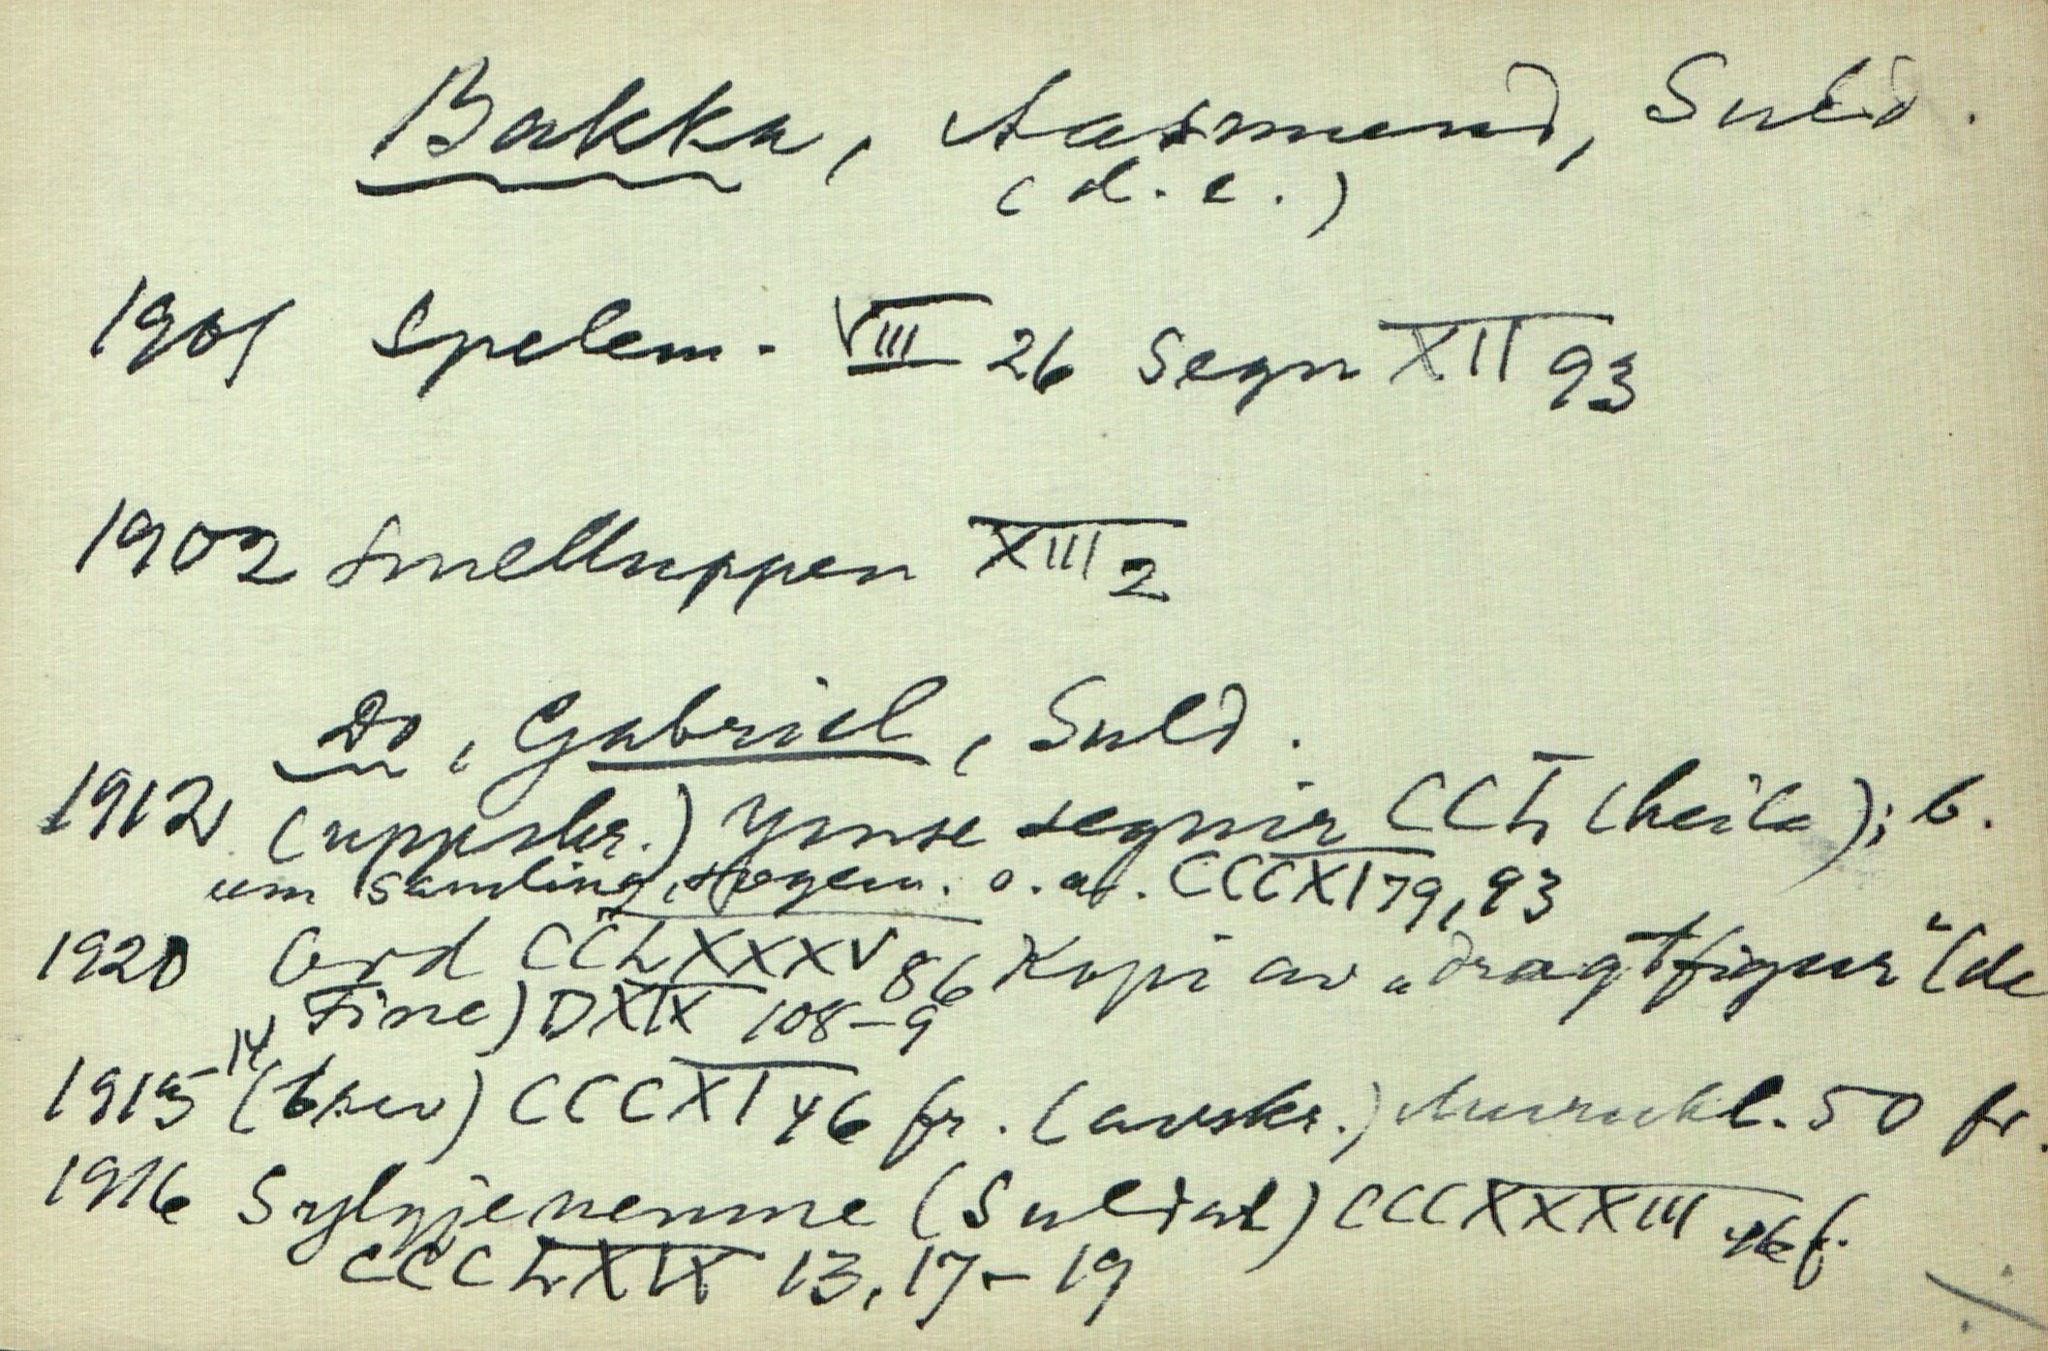 Bakka, Aasmund, Suld.
(d.e.)
1901 Spelem. VIII 26 Segn XII 93
1902 Smelluppen XIII 2
Do, Gabriel, Suld.
1912 (uppskr.) Ymse segnir CCL (heile); b.
um samling, o.a. CCCXI 79, 93
1920 Ord CCLXXXV 86 Kopi av „dragtfigur" (de
Fine) DXIX 108-9
1915 14 (brev) CCCXI 46 fr. (avskr.) 50 fr.
1916 Sylgjenemne (Suldal) CCCXXXIII 46 f.
CCCLXIX 13, 17-19